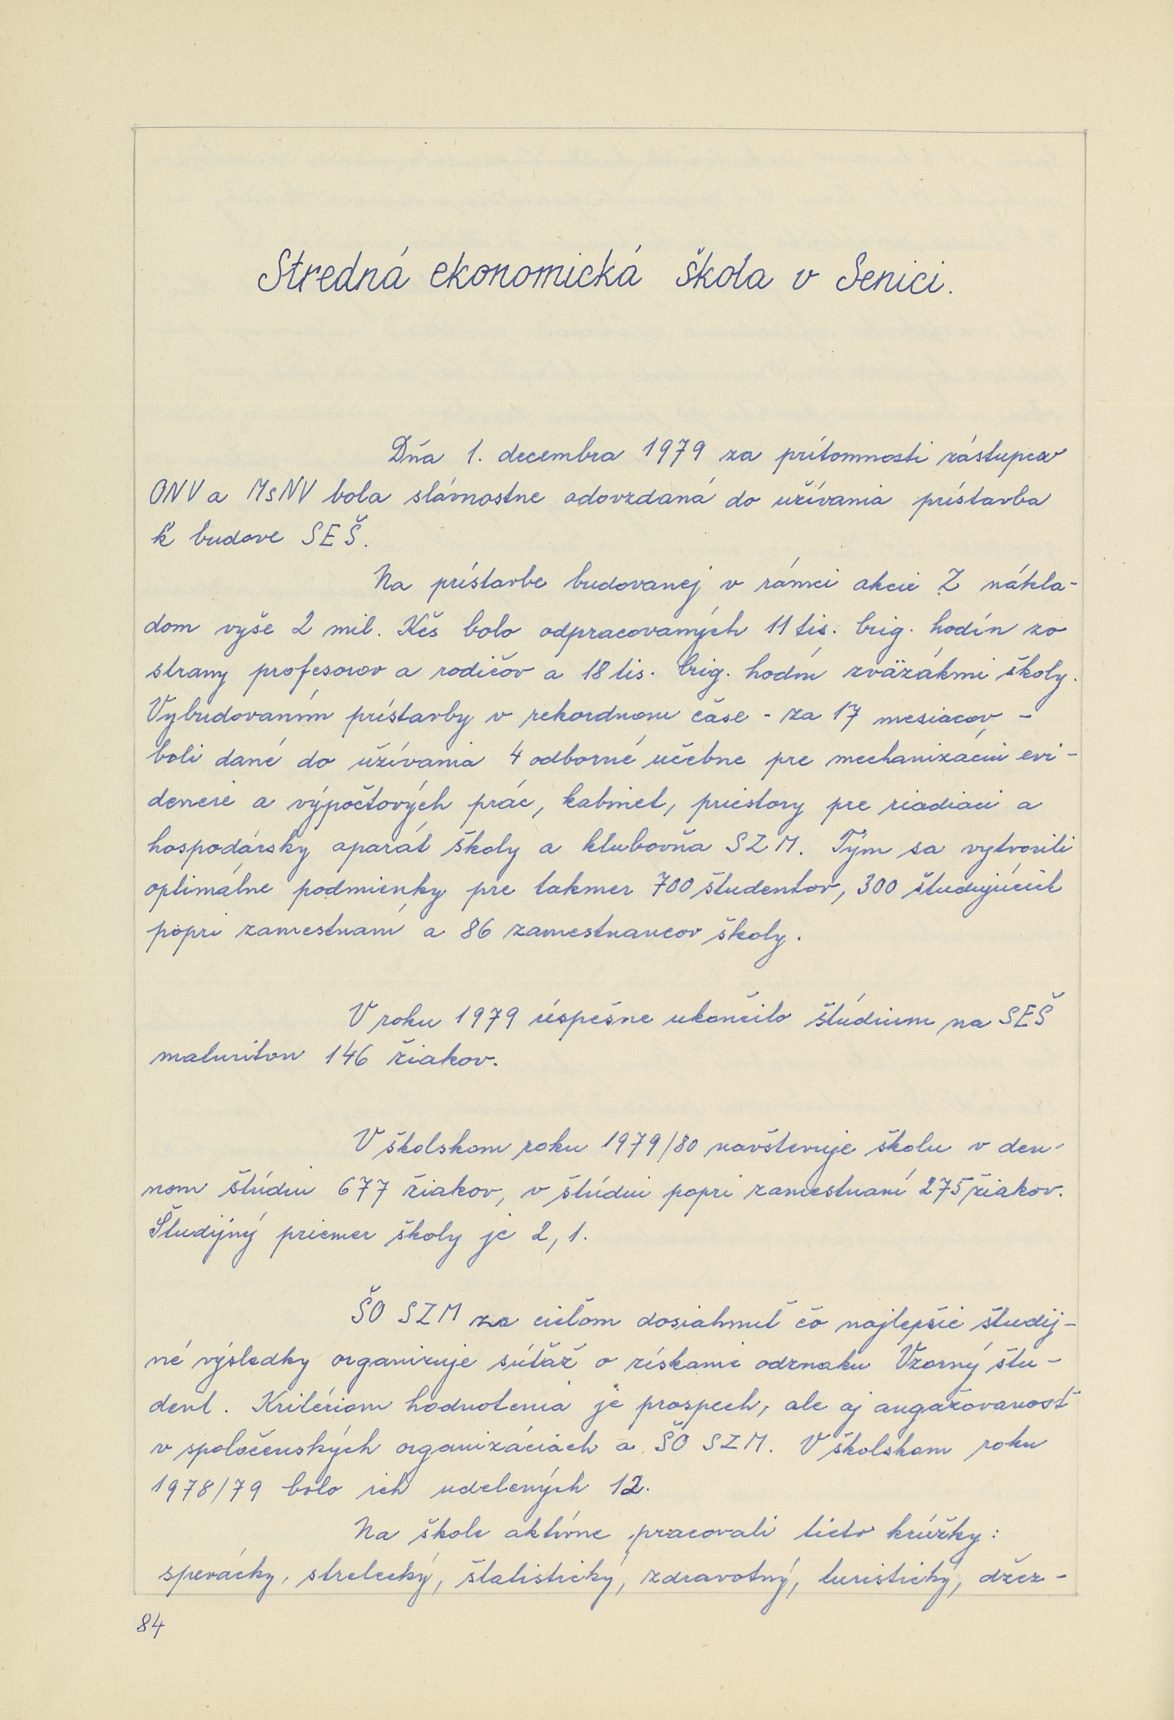 Stredná ekonomická škola v Senici.
Dňa 1. decembra 1979 za prítomnosti zástupcov
ONV a MsNV bola slávnostne odovzdaná do užívania prístavba
k budove SEŠ.
Na prístavbe budovanej v rámci akcie Z nákla-
dom vyše 2 mil. Kčs bolo odpracovaných 11 tis. brig. hodín zo
strany profesorov a rodičov a 18 tis. brig. hodín zväzákmi školy.
Vybudovaním prístavby v rekordnom čase - za 17 mesiacov -
boli dané do užívania 4 odborné učebne pre mechanizáciu evi-
dencie a výpočtových prác, kabinet, priestory pre riadiaci a
hospodársky aparát školy a klubovňa SZM. Tým sa vytvorili
optimálne podmienky pre takmer 700 študentov, 300 študujúcich
popri zamestnaní a 86 zamestnancov školy.
V roku 1979 úspešne ukončilo štúdium na SEŠ
maturitou 146 žiakov.
V školskom roku 1979/80 navštevuje školu v den-
nom štúdiu 677 žiakov, v štúdiu popri zamestnaní 275 žiakov.
Študijný priemer školy je 2,1.
ŠO SZM za cieľom dosiahnuť čo najlepšie študij-
né výsledky organizuje súťaž o získanie odznaku Vzorný štu-
dent. Kritériom hodnotenia je prospech, ale aj angažovanosť
v spoločenských organizáciach a ŠO SZM. V školskom roku
1978/79 bolo ich udelených 12.
Na škole aktívne pracovali tieto krúžky:
spevácky, strelecký, štatistický, zdravotný, turistický, džez-
84